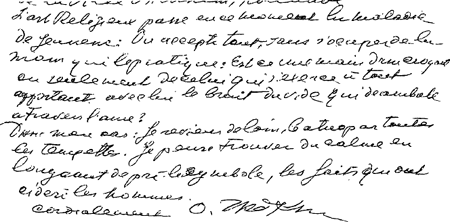 L'art Religieux passe en ce moment la maladie
de jeunesse: On accepte tout, sans s'occuper de la
main qui le pratique: Est ce une main d'un croyant
ou seulement de celui qui s'exerce à tout
apportant avec lui le bruit du vide qui deambule
à travers l'ame?
mon cas: Je reviens de loin, battu par toutes
les tempettes. Je peux trouver du calme en
longeant de pré le symbole, les faits qui ont
les hommes.
cordialement O.